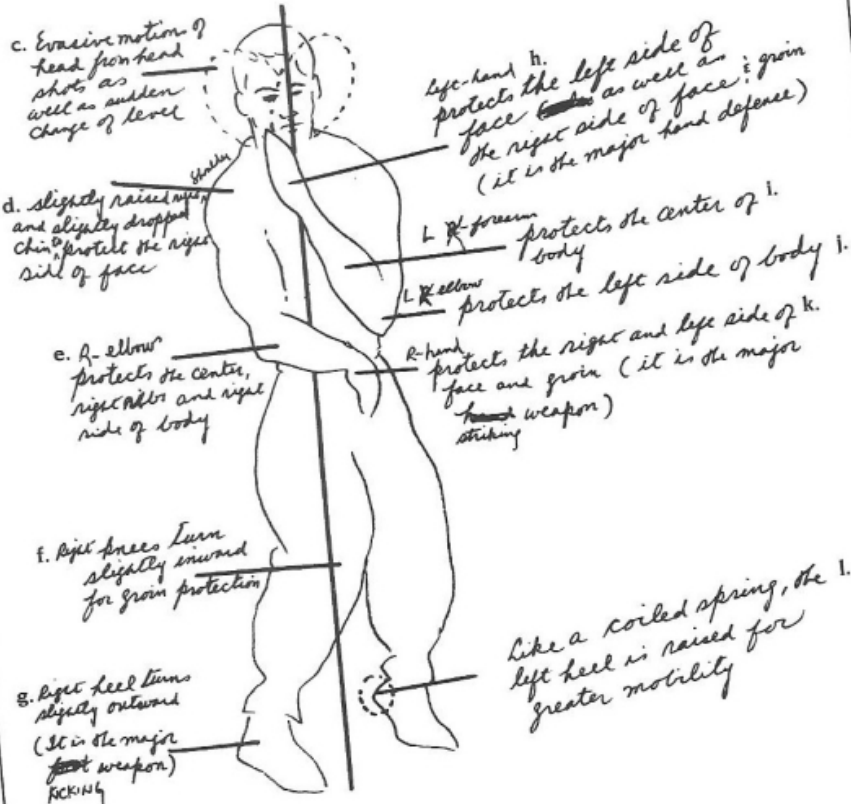 c. Evasive motion of
head from head
shots as
well as sudden
change of level
shoulder
d. slightly raised
and slightly dropped
chin to protect the right
side of face
e. R-elbow
protects the center,
right ribs and right
side of body
f. Right knees turn
slightly inward
for groin protection
g. Right heel turns
slightly outward
(It is the major
weapon)
KICKING
left-hand h.
protects the left side of
face as well as
the right side of face & groin
(it is the major hand defense)
L forearm protects the center of i.
body
L elbow protects the left side of body j.
R-hand
protects the right and left side of k.
face and groin (it is the major
hand weapon)
striking
Like a coiled spring, the l.
left heel is raised for
greater mobility